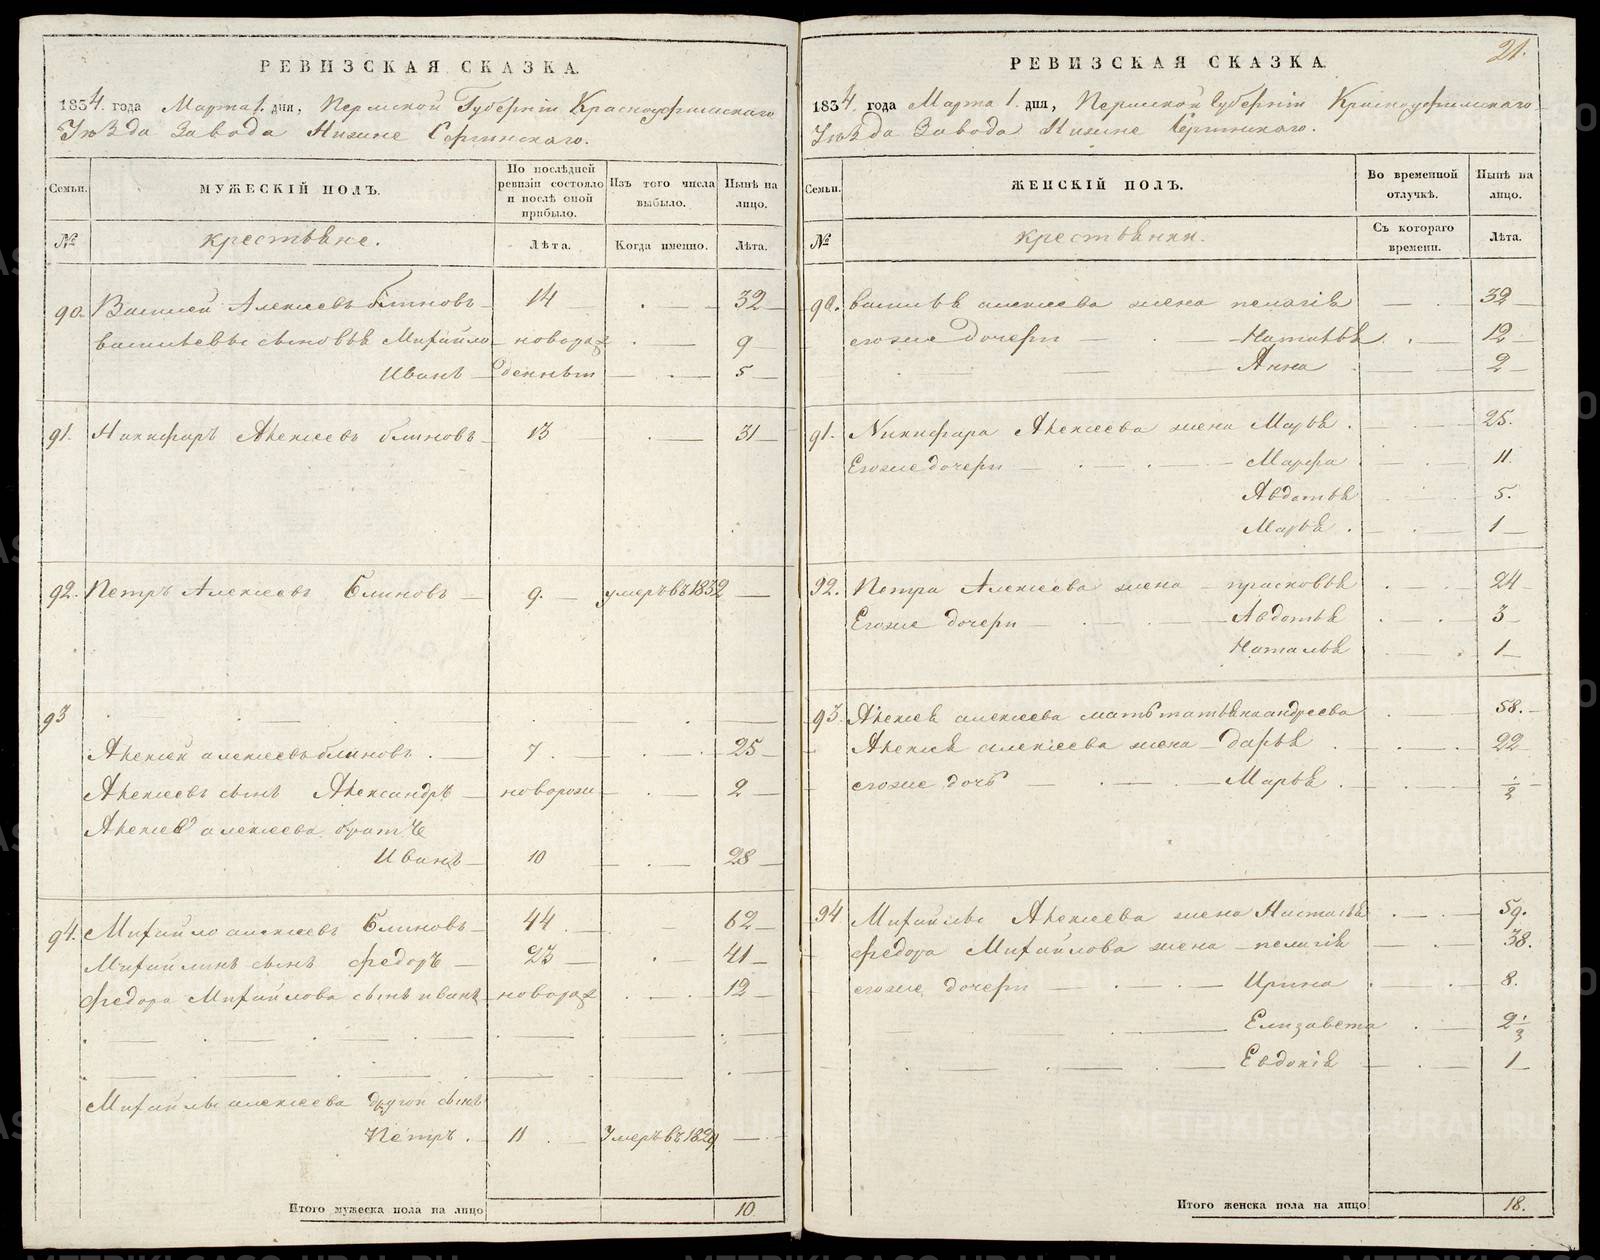 РЕВИЗСКАЯ СКАЗКА.
1834. года Марта 1. дня, Пермской Губерніи Красноуфимскаго
Уѣзда Завода Нижне Сергинскаго.
Семьи.
МУЖЕСКІЙ ПОЛЪ.
По послѣдней ревизіи состояло и послѣ оной прибыло.
Изъ того числа выбыло.
Нынѣ на лицо.
№
крестьяне.
Лѣта.
Когда именно.
Лѣта.
90. Василей Алексеевъ блиновъ 14 32
васильевы сыновья Михайло новораж 9
Иванъ денныи 5
91. Никифаръ Алексеевъ блиновъ 13 31
92. Петръ Алексеевъ Блиновъ 9. умеръ въ 1832
93
Алексей алексеевъ блиновъ. 7. 25
Алексеевъ сынъ Александръ новорож 2
Алексея алексеева братъ
Иванъ 10 28
94. Михайло алексеевъ Блиновъ 44 62
Михайлинъ сынъ федоръ 23 41
федора Михайлова сынъ иванъ новораж 12
Михайлы алексеева другой сынъ
Петръ. 11 Умеръ въ 1829
Итого мужеска пола на лицо 10
21.
РЕВИЗСКАЯ СКАЗКА.
1834. года Марта 1. дня, Пермской Губерніи Красноуфимскаго
Уѣзда Завода Нижне Сергинскаго.
Семьи.
ЖЕНСКІЙ ПОЛЪ.
Во временной отлучкѣ.
Нынѣ на лицо.
№
крестьянки.
Съ котораго времени.
Лѣта.
90. василья алексеева жена пелагія 32
егоже дочери Наталья 12
Анна 2
91. Никифара Алексеева жена Марья. 25.
Егоже дочери Марфа 11.
Авдотья 5.
Марья. 1
92. Петра Алексеева жена прасковья 24
Егоже дочери Авдотья 3
Наталья 1
93. Алексея алексеева мать татьяна андреева 58.
Алексея алексеева жена дарья 22
егоже дочь Марья. 1/2
94 Михайлы Алексеева жена Настасья 59.
федора Михайлова жена пелагія 38.
егоже дочери Ирина 8.
Елизавета 2 1/2
Евдокія 1
Итого женска пола на лицо 18.
METRIKI.GASO-URAL.RU